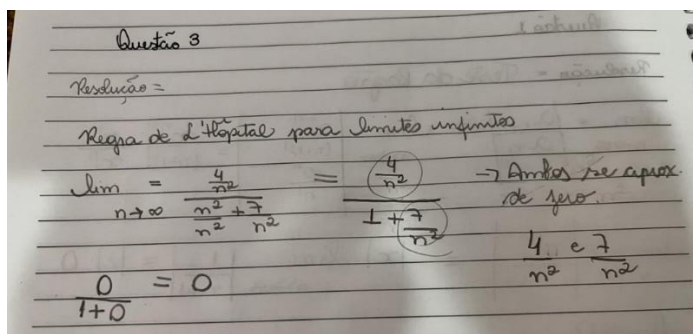 Questão 3
Resolução =
Regra de L'Hôpital para limites infinitos
lim n→∞ = (4/n²)/(n²/n² + 7/n²) = (4/n²)/(1 + 7/n²) → Ambos se aprox. de zero.
4/n² e 7/n²
0/(1+0) = 0